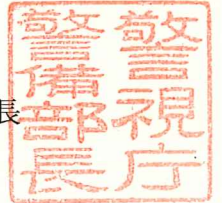 長
警視庁
警備部長